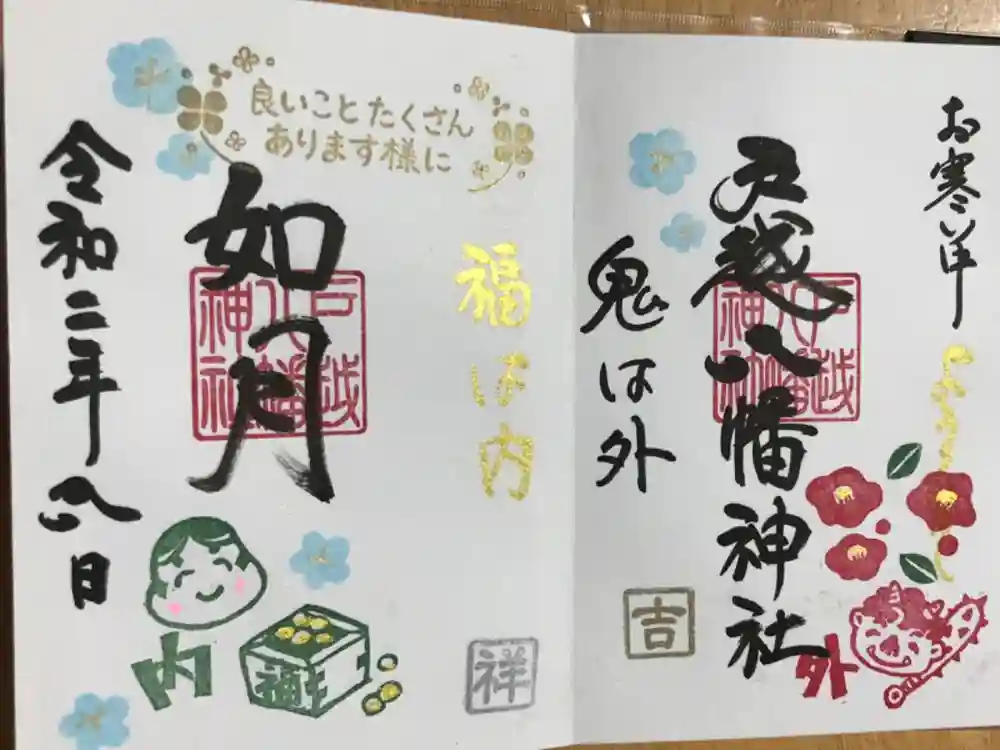 お寒い中
戸越八幡神社
戸越八幡神社
鬼は外
外
吉
福は内
祥
良いことたくさん
あります様に
如月
戸越八幡神社
令和二年八日
内
福